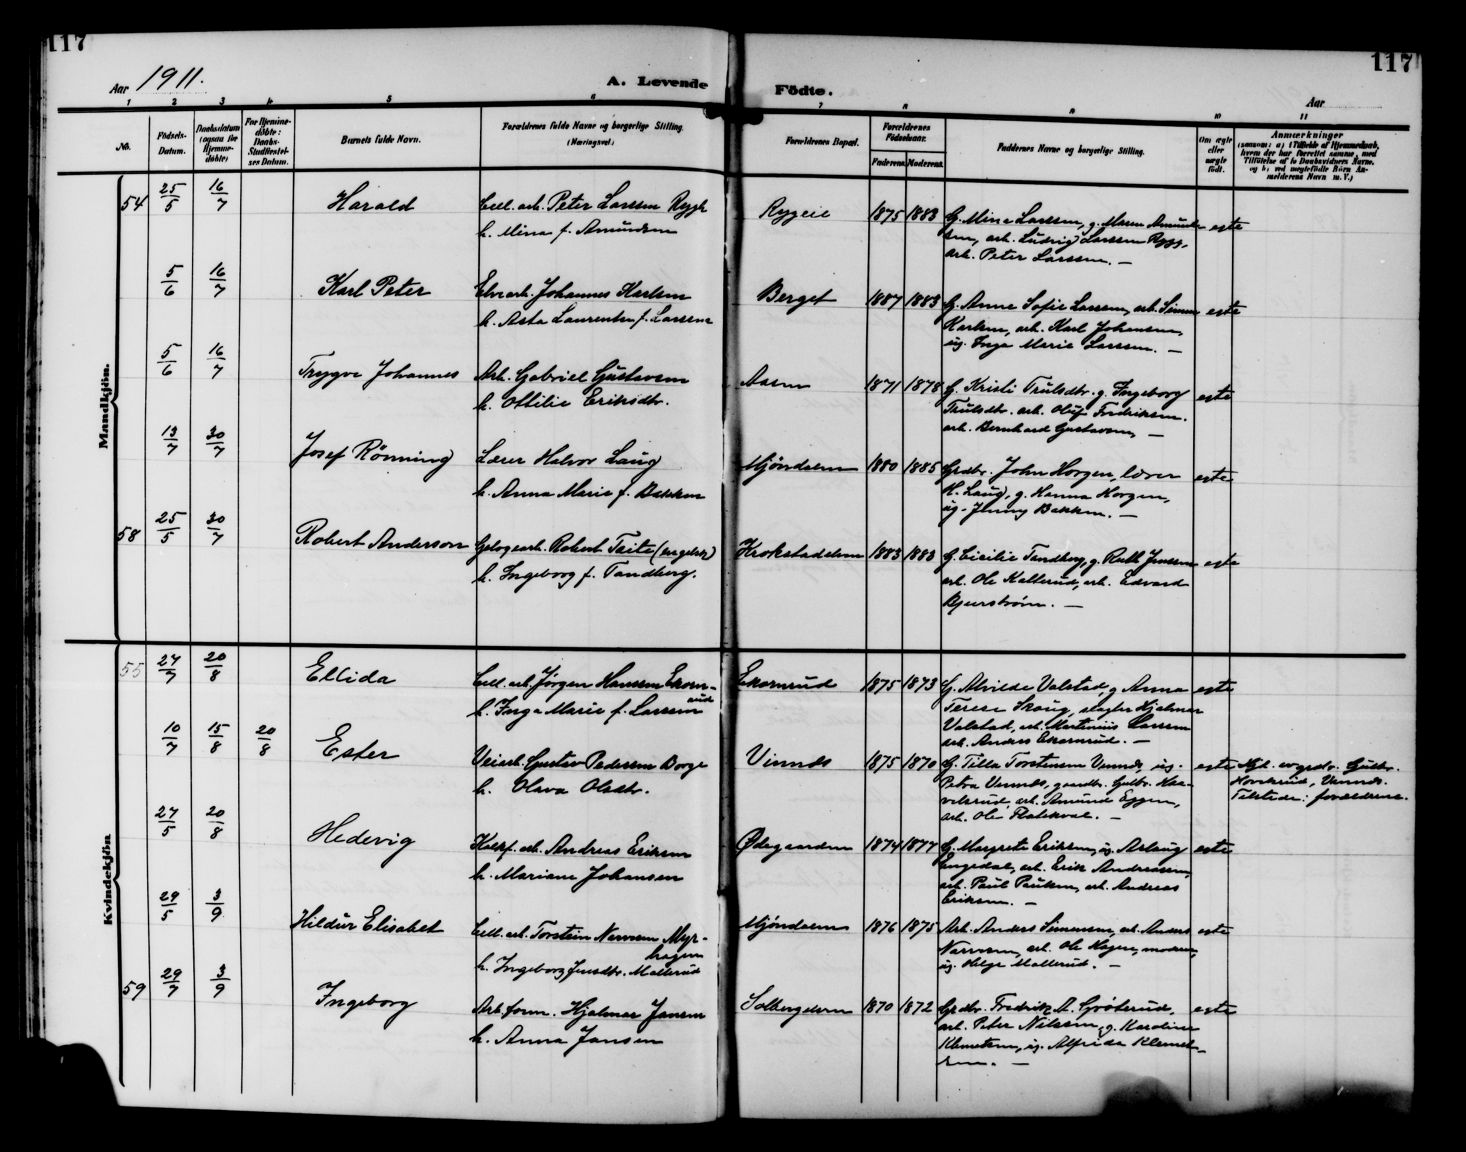 117
117
Aar 1911.
A. Levende
Födte.
Aar
1 2 3 4 5 6 7 8 9 10 11
No.
Födsels-Datum.
Daabsdatum (ogsaa for Hjemmedöbte)
For Hjemmedöbte: Daabs-Stadfæstelses Datum.
Barnets fulde Navn.
Forældrenes fulde Navne og borgerlige Stilling. (Næringsvei.)
Forældrenes Bopæl.
Forældrenes Födselsaar.
Faderens Moderens
Faddernes Navne og borgerlige Stilling.
Om ægte eller uægte födt.
Anmærkninger
Mandkjön.
54 25/5 16/7 Harald
Cell. arb. Peter Larssen Rygh
h. Mina f. Amundsen
Rygeie 1875 1883
G. Mina Larssen, g. Maren Amund-
sen, arb. Ludvig Larssen Rygh,
arb. Peter Larssen. —
egte
5/6 16/7 Karl Peter
Elvearb. Johannes Karlsen
h. Asta Laurentse f. Larssen
Berget 1887 1883
G. Anne Sofie Larssen, arb. Simen
Karlsen, arb. Karl Johansen,
ug. Inga Marie Larssen. —
egte
5/6 16/7 Trygve Johannes
Arb. Gabriel Gustavsen
h. Ottilie Eriksdtr.
Aasen 1871 1878
G. Kristi Trulsdtr. g. Ingeborg
Trulsdtr. arb. Oluf Fredriksen.
arb. Bernhard Gustavsen, —
egte
13/7 30/7 Josef Rönning
Lærer Halvor Laug
h. Anna Marie f. Bakken
Mjöndalen 1880 1885
Grdbr. John Horgen, lærer
H. Laug, g. Hanna Horgen,
ug. Jenny Bakken. —
egte
58 25/5 30/7 Robert Anderson
Robert Taite (engelsk)
h. Ingeborg f. Tandberg.
Krokstadelven 1883 1883
G. Cicilie Tandberg, g. Ruth Jenssen
arb. Ole Kallerud, arb. Edvard
Bjurström. —
egte
Kvindekjön
55 27/7 20/8 Ellida
Cell. arb. Jörgen Hanssen Ekorn-
rud
h. Inga Marie f. Larssen
Ekornrud 1875 1873
G. Alvilde Valstad, g. Anna
Terese Skoug, slagter Hjalmar
Valstad, arb. Martinius Larssen
arb. Anders Ekornrud. —
egte
10/7 15/8 20/8 Ester
Veiarb. Gustav Pedersen Borge
h. Olava Olsdtr.
Vinnds 1875 1870
G. Tilla Torstensen Vinnds, ug.
Petra Vinnds, gaardbr. Gulbr. Hor-
verud, arb. Amund Eggen,
arb. Ole Flatekval. —
egte
Hovsrud, Vinnds.
Tilstede: forældrene.
27/5 20/8 Hedevig
arb. Andreas Eriksen
h. Mariane Johansen
Ødegaarden 1874 1877
G. Margrete Eriksen, ug. Aslaug
Engedal, arb. Erik Andreassen,
arb. Paul Paulsen, arb. Andreas
Eriksen. —
egte
29/5 3/9 Hildur Elisabet
Cell. arb. Torstein Narvesen Myr-
hagen
h. Ingeborg Jensdtr. Mallerud
Mjöndalen 1876 1875
Arb. Anders Simensen, arb. Anders
Narvesen, arb. Ole Hagen, moderen,
ug. Helge Mallerud. —
egte
59 29/7 3/9 Ingeborg
Arb.form. Hjalmar Jansen
h. Anna Jansen
Solbergelven 1870 1872
Grdbr. Fredrik A. Gröterud,
arb. Peter Nilssen, g. Karoline
Klemetsen, ug. Alfrida Klemet-
sen. —
egte